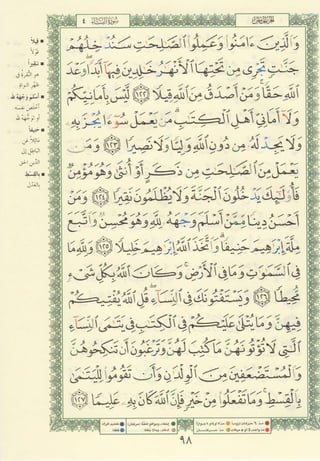 سورة النساء ٤
وَالَّذِينَ ءَامَنُوا وَعَمِلُوا الصَّلِحَتِ سَنُدْخِلُهُمْ
جَنَّتٍ تَجْرِى مِن تَحْتِهَا الْأَنْهَرُ خَلِدِينَ فِيهَا أَبَدًا وَعْدَ
اللَّهِ حَقًّا وَمَنْ أَصْدَقُ مِنَ اللَّهِ قِيلًا ١٢٢ لَّيْسَ بِأَمَانِيِّكُمْ
وَلَا أَمَانِىِّ أَهْلِ الْكِتَبِ مَن يَعْمَلْ سُوءًا يُجْزَ بِهِ
وَلَا يَجِدْ لَهُ مِن دُونِ اللَّهِ وَلِيًّا وَلَا نَصِيرًا ١٢٣ وَمَن
يَعْمَلْ مِنَ الصَّلِحَتِ مِن ذَكَرٍ أَوْ أُنثَى وَهُوَ مُؤْمِنٌ
فَأُولَئِكَ يَدْخُلُونَ الْجَنَّةَ وَلَا يُظْلَمُونَ نَقِيرًا ١٢٤ وَمَنْ
أَحْسَنُ دِينًا مِّمَّنْ أَسْلَمَ وَجْهَهُ لِلَّهِ وَهُوَ مُحْسِنٌ وَاتَّبَعَ
مِلَّةَ إِبْرَهِيمَ حَنِيفًا وَاتَّخَذَ اللَّهُ إِبْرَهِيمَ خَلِيلًا ١٢٥ وَلِلَّهِ مَا
فِى السَّمَوَتِ وَمَا فِى الْأَرْضِ وَكَانَ اللَّهُ بِكُلِّ شَىْءٍ
مُّحِيطًا ١٢٦ وَيَسْتَفْتُونَكَ فِى النِّسَاءِ قُلِ اللَّهُ يُفْتِيكُمْ
فِيهِنَّ وَمَا يُتْلَى عَلَيْكُمْ فِى الْكِتَبِ فِى يَتَمَى النِّسَاءِ
الَّتِى لَا تُؤْتُونَهُنَّ مَا كُتِبَ لَهُنَّ وَتَرْغَبُونَ أَن تَنكِحُوهُنَّ
وَالْمُسْتَضْعَفِينَ مِنَ الْوِلْدَنِ وَأَن تَقُومُوا لِلْيَتَمَى
بِالْقِسْطِ وَمَا تَفْعَلُوا مِنْ خَيْرٍ فَإِنَّ اللَّهَ كَانَ بِهِ عَلِيمًا ١٢٧
قيلًا
قولًا
نقيرًا
حنيفًا
بالقسط
بالعدل
٩٨